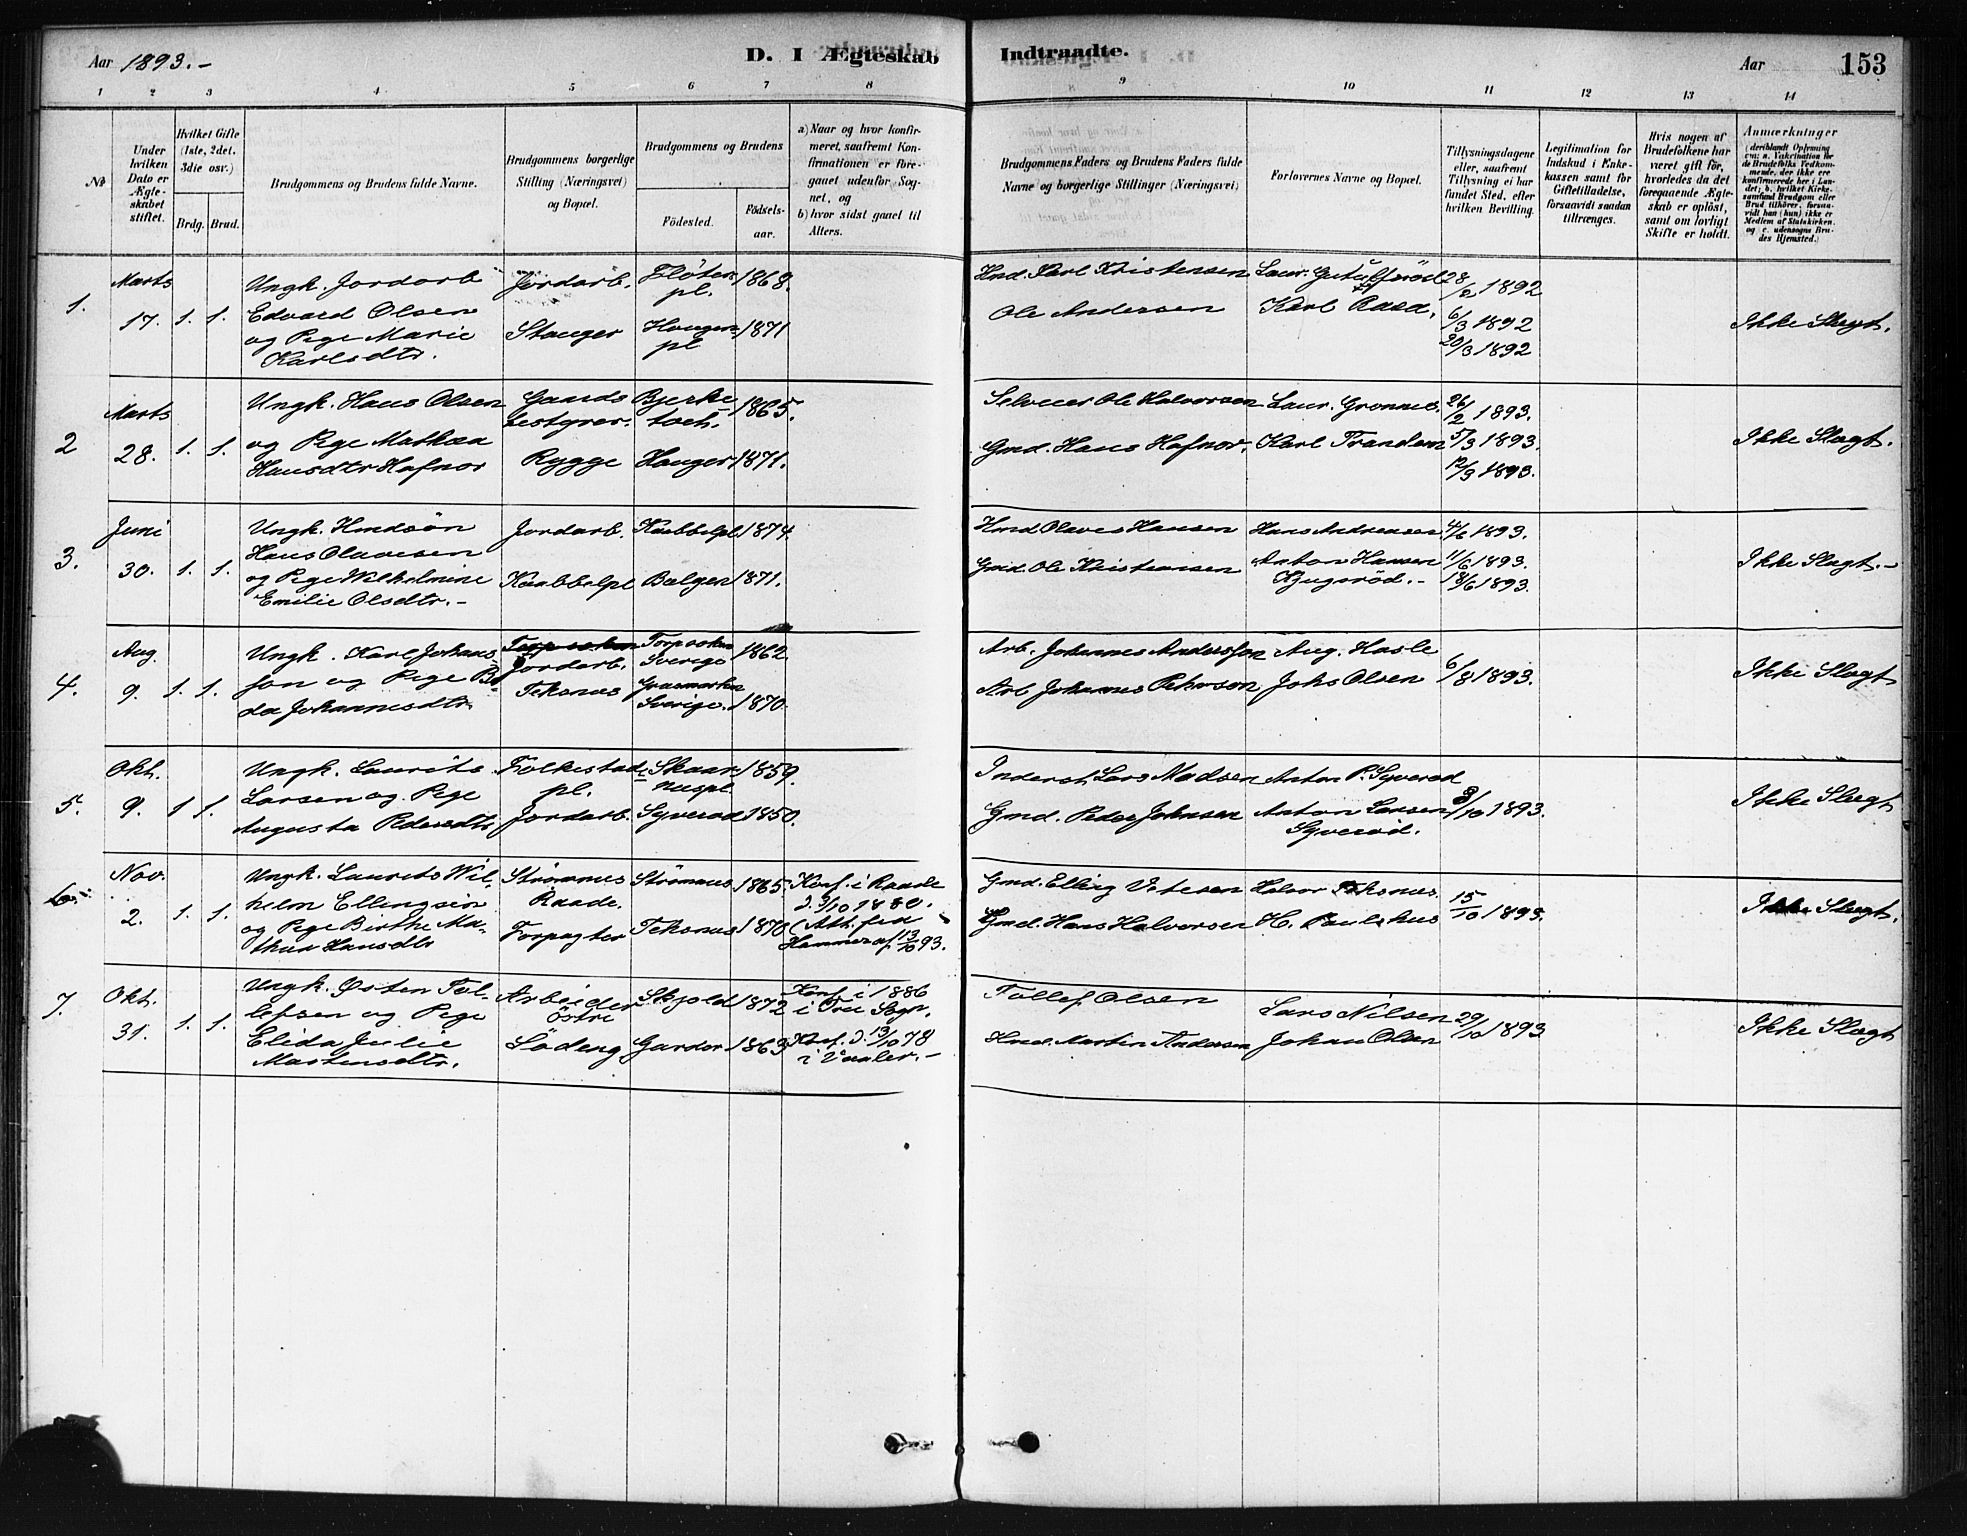 Aar 1893.-
D. I Ægteskab Indtraadte.
Aar 153
1 2 3 4 5 6 7 8 9 10 11 12 13 14
No
Under hvilken Dato er Ægteskabet stiftet.
Hvilket Gifte (1ste, 2det, 3die osv.)
Brdg. Brud.
Brudgommens og Brudens fulde Navne.
Brudgommens borgerlige Stilling (Næringsvei) og Bopæl.
Brudgommens og Brudens
Födested. Födselsaar.
a) Naar og hvor konfirmeret, saafremt Konfirmationen er foregaaet udenfor Sognet, og
b) hvor sidst gaaet til Alters.
Brudgommens Faders og Brudens Faders fulde Navne og borgerlige Stillinger (Næringsvei)
Forlovernes Navne og Bopæl.
Tillysningsdagene eller, saafremt Tillysning ei har fundet Sted, efter hvilken Bevilling.
Legitimation for Indskud i Enkekassen samt for Giftetilladelse, forsaavidt saadan tiltrænges.
Hvis nogen af Brudefolkene har været gift för, hvorledes da det foregaaende Ægteskab er oplöst, samt om lovligt Skifte er holdt.
Anmærkninger (deriblandt Oplysning om: a. Vakcination for de Brudefolks Vedkommende, der ikke ere konfirmerede her i Landet; b. hvilket Kirkesamfund Brudgom eller Brud tilhörer, forsaavidt han (hun) ikke er Medlem af Statskirken, og c. udensogns Brudes Hjemsted.)
1. Marts 17. 1. 1.
Ungk. Jordarb
Edvard Olsen
og Pige Marie
Karlsdtr.
Jordarb.
Stanger
pl. 1868.
pl 1871
Hmd. Karl Kristensen
Ole Andersen
Karl Raad.
28/2 1892
6/3 1892
20/3 1892
Ikke Slægt.
2 Marts 28. 1. 1.
Ungk. Hans Olsen
og Pige Mathea
Hansdtr Hafnor
Gaardsbestyrer.
Rygge
1865.
Hauger 1871.
Selveier Ole Halvorsen
Gmd. Hans Hafnor.
Karl Trandem
26/2 1893.
5/3 1893.
12/3 1893.
Ikke Slægt.
3. Juni 30. 1. 1.
Ungk. Hmdsön
Hans Olavesen
og Pige Wilhelmine
Emilie Olsdtr.-
Jordarb.
Kaabbelpl
Kaabbelpl 1874.
Balgen 1871.
Hmd Olaves Hansen
Gmd. Ole Kristensen
Hans Andreasen
Anton Hansen
4/6 1893.
11/6 1893.
18/6 1893.
Ikke Slægt.-
4. Aug. 9. 1. 1.
Ungk. Karl Johans-
son og Pige B
da Johannesdtr
Jordarb.
Teksnæs
Torpsoken
Sverige 1862
Sverige. 1870.
Arb. Johannes Andersson
Arb Johannes Pehrson
Aug. Hasle
Johs Olsen
6/8 1893.
Ikke Slægt
5. Okt. 9. 1 1.
Ungk. Laurits
Larsen og Pige
Augusta Pedersdtr.
Folkestad-
pl.
Jordarb.
Skaar-
næspl. 1859.
Syverød 1850.
Inderst. Lars Madsen
Gmd. Peder Johnsen
Anton P. Syverød
Anton Larsen
Syverød.
/10 1893.
Ikke Slægt
6. Nov. 2. 1. 1.
Ungk. Laurits Wil-
helm Ellingsen
og Pige Birthe Ma-
thea Hansdtr
Strömnes
Raade.
Forpagter
Strömnes 1865.
Teksnæs 1870
Konf. i Raade
D. 3/10 1880.
(Att. fra
Hammer af 13/10 93.
Gmd. Elling
Gmd. Hans Halvorsen
Halvor Teksnæs.
H. Paulshus
15/10 1893.
Ikke Slægt.
7. Okt. 31. 1. 1.
Ungk. Østen Tol-
lefsen og Pige
Elida Julie
Martinsdtr.
Arbeider
Östre
Södeng
Skjold 1872
Garder 1863
Konf. i 1886
i Sogn.
Konf. D. 13/10 78
i Vaaler.-
Tollef Olsen
Hmd. Martin Andersen
Lars Nilsen
Johan Olsen
29/10 1893
Ikke Slægt